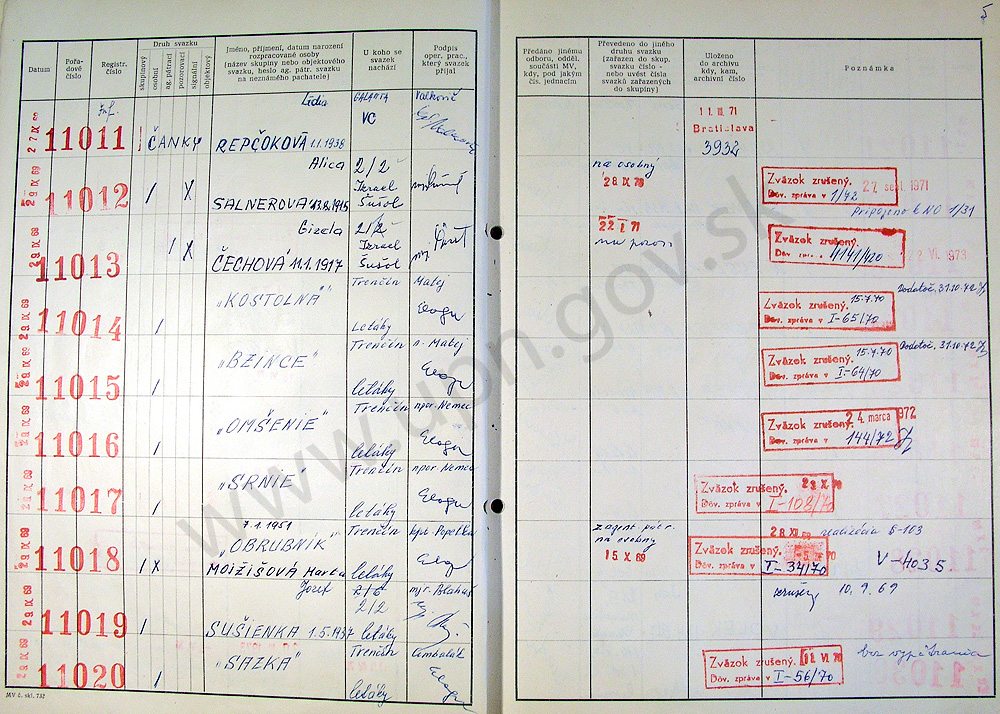 5
Datum
Pořadové číslo
Registr. číslo
Druh svazku
skupinový
osobní
ag. pátrací
pozorovací
signální
objektový
Jméno, příjmení, datum narození
rozpracované osoby
(název skupiny nebo objektového
svazku, heslo ag. pátr. svazku
na neznámého pachatele)
U koho se
svazek
nachází
Podpis
oper. prac.,
který svazek
přijal
Předáno jinému
odboru, odděl.
součásti MV,
kdy, pod jakým
čís. jednacím
Převedeno do jiného
druhu svazku
(zařazen do skup.
svazku číslo -
nebo uvést čísla
svazků zařazených
do skupiny)
Uloženo
do archivu
kdy, kam,
archivní číslo
Poznámka
27 IX 69
11011
ČANKY
Lídia
REPČOKOVÁ 1.1.1938
GALANTA
VC
Valkovič
11. III. 71
Bratislava
3932
29 IX 69
11012
/ X
Alica
SALNEROVÁ 13.8.1915
2/Ž
Izrael
Šušol
na osobný
28 IX 70
Zväzok zrušený.
Dôv. zpráva v 1/42
27 sept. 1971
Pripojeno k NO 1/31
29 IX 69
11013
/ X
Gizela
ČECHOVÁ 11.1.1917
2/Ž
Izrael
Šušol
22 I. 71
Zväzok zrušený.
4141/420
22 VI. 1973
29 IX 69
11014
/
„KOSTOLNÁ"
Trenčín
Letáky
Matej
Zväzok zrušený.
15.7.70
Dôv. zpráva v I-65/70
Dodatoč. 31.10.72
29 IX 69
11015
/
„BZINCE"
Trenčín
letáky
n. Matej
Zväzok zrušený.
15.7.70
Dôv. zpráva v I-64/70
Dodatoč. 31.10.72
29 IX 69
11016
/
„OMŠENIE"
Trenčín
letáky
npor. Nemec
24. marca 1972
Zväzok zrušený.
Dôv. zpráva v 144/72
29 IX 69
11017
/
„SRNIE"
Trenčín
letáky
npor. Nemec
23 X 70
Zväzok zrušený.
Dôv. zpráva v I-108/70
29 IX 69
11018
/ X
7.1.1951
„OBRUBNÍK"
MOJŽIŠOVÁ Marta
Trenčín
letáky
na osobný
15 X. 69
28 XII 69
realizácia S-103
Zväzok zrušený.
Dôv. zpráva v I-34/70
V-4035
29 IX 69
11019
/
Jozef
SUŠIENKA 1.5.1937
2/2
letáky
10.9.69
29 IX 69
11020
/
„SAZKA"
Trenčín
letáky
Zväzok zrušený.
11 VI. 70
Dôv. zpráva v I-56/70
bez vypátrania
MV č. skl. 732
www.upn.gov.sk